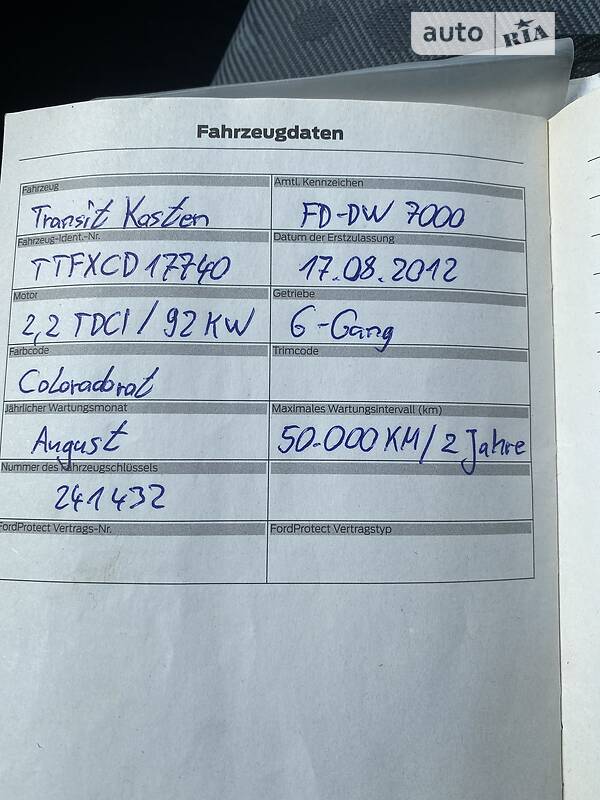 auto RIA
Fahrzeugdaten
Fahrzeug
Amtl. Kennzeichen
Transit Kasten
FD-DW 7000
Fahrzeug-Ident.-Nr.
Datum der Erstzulassung
TTFXCD17740
17.08.2012
Motor
Getriebe
2,2 TDCI / 92 KW
6-Gang
Farbcode
Trimcode
Coloradorot
Jährlicher Wartungsmonat
Maximales Wartungsintervall (km)
August
50.000 KM / 2 Jahre
Nummer des Fahrzeugschlüssels
241432
FordProtect Vertrags-Nr.
FordProtect Vertragstyp